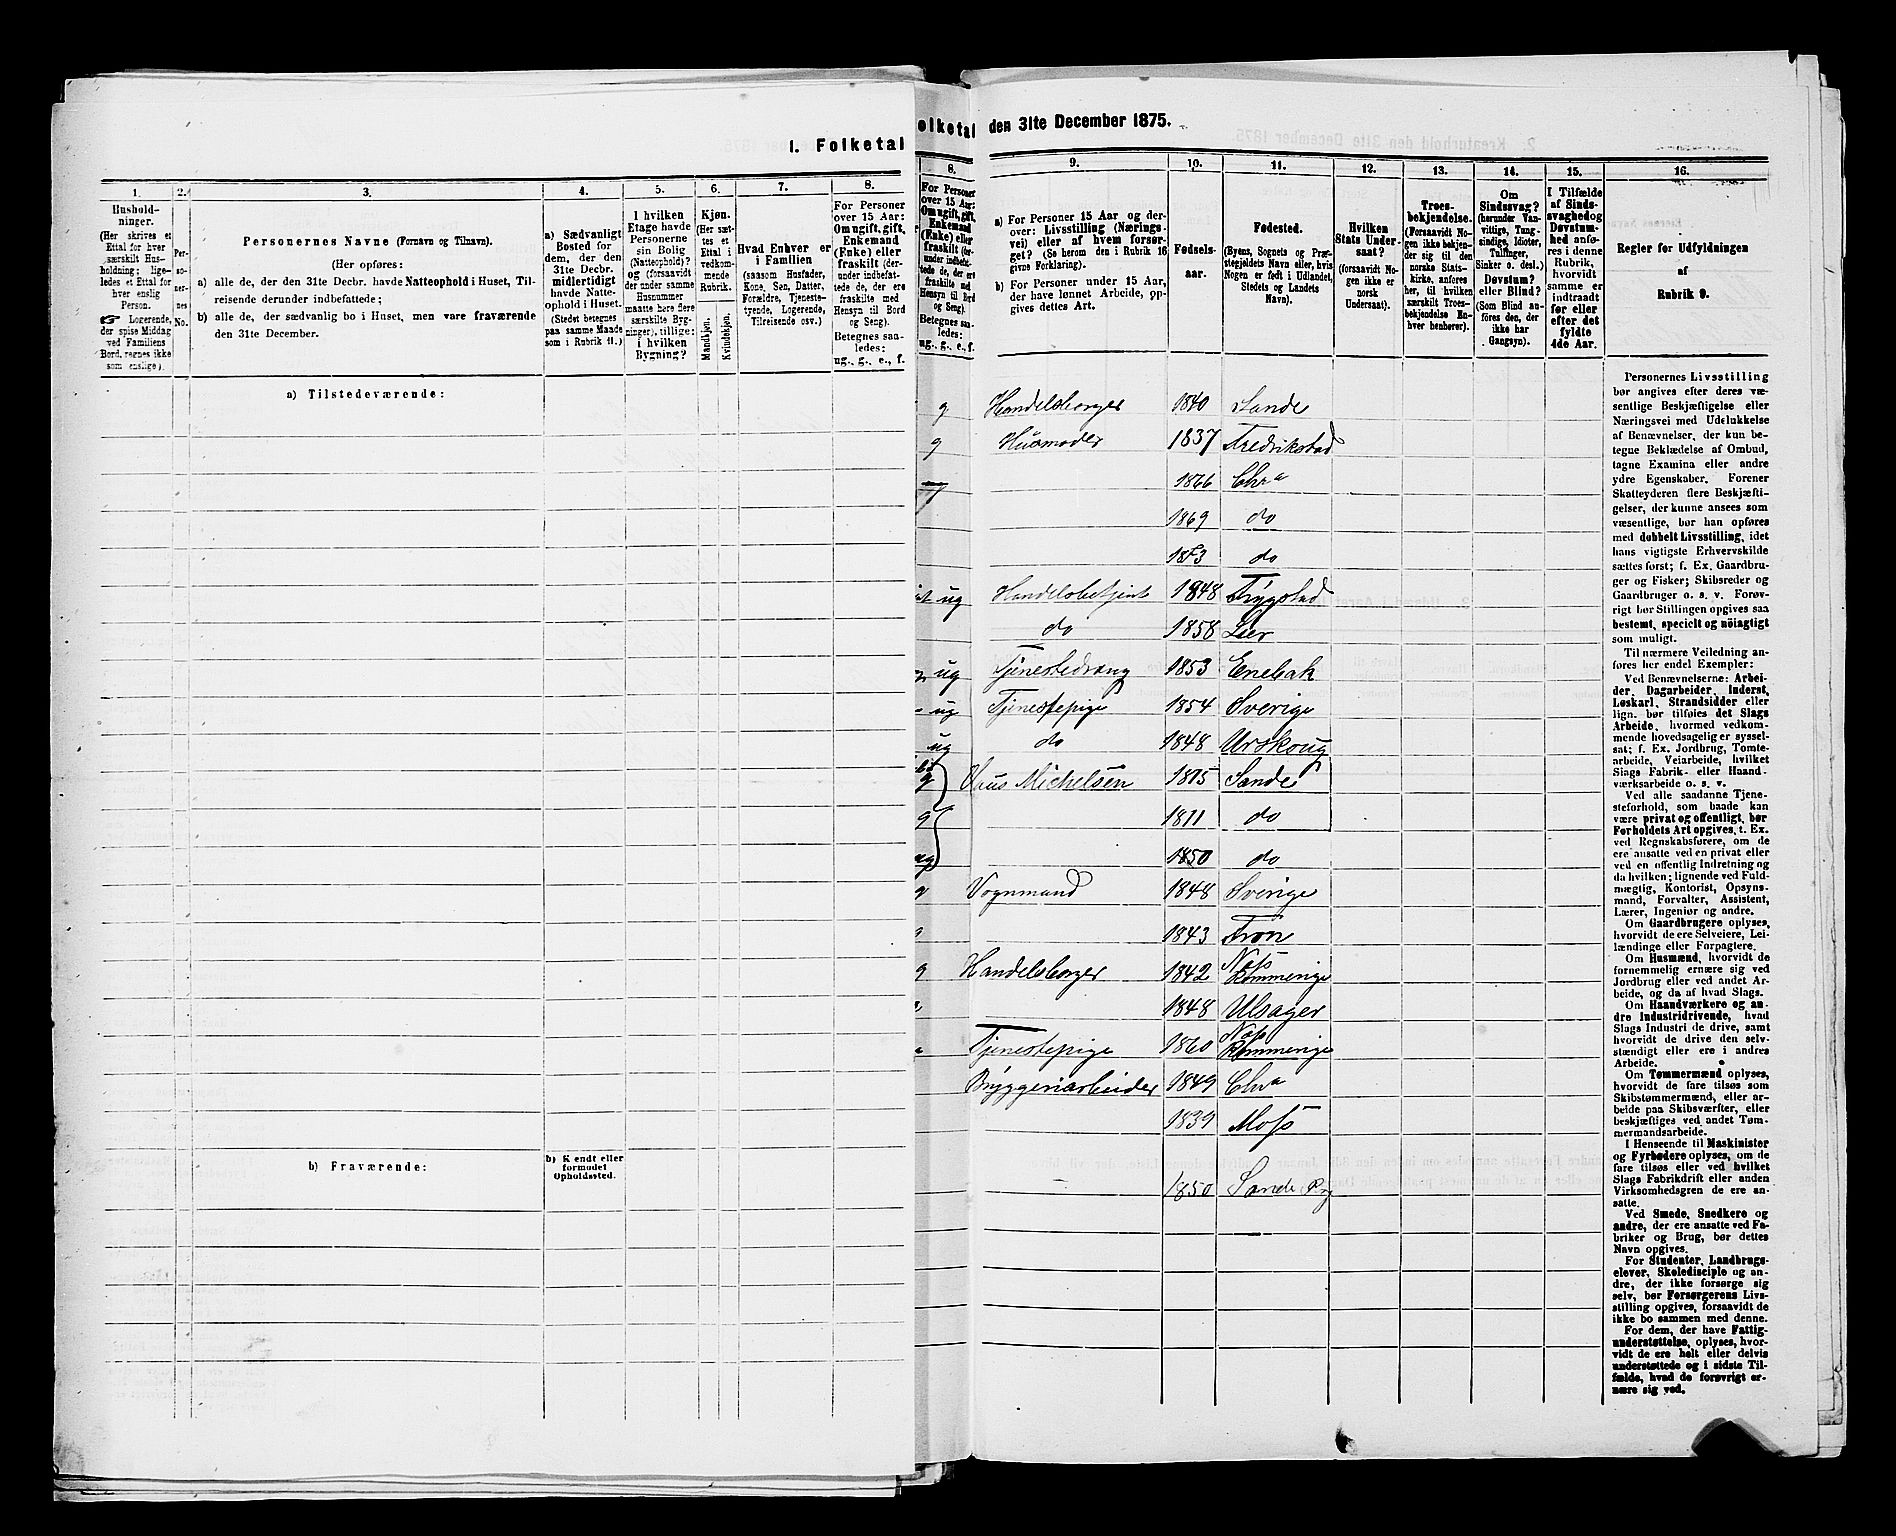 1. Folketal
1.
2.
3.
4.
5.
6.
7.
8.
Hushold-
ninger.
(Her skrives et
Ettal for hver
særskilt Hus-
holdning; lige-
ledes et Ettal for
hver enslig
Person.
☞ Logerende,
der spise Middag
ved Familiens
Bord, regnes ikke
som enslige).
Per-
so-
ner-
nes
No.
Personernes Navne (Fornavn og Tilnavn).
(Her opføres:
a) alle de, der den 31te Decbr. havde Natteophold i Huset, Til-
reisende derunder indbefattede;
b) alle de, der sædvanlig bo i Huset, men vare fraværende
den 31te December.
a) Sædvanligt
Bosted for
dem, der den
31te Decbr.
midlertidigt
havde Natte-
ophold i Huset.
(Stedet betegnes
paa samme Maade
som i Rubrik 11.)
I hvilken
Etage havde
Personerne
sin Bolig
(Natteophold)?
og (forsaavidt
der under samme
Husnummer
maatte høre flere
særskilte Byg-
ninger), tillige:
i hvilken
Bygning?
Kjøn.
(Her sæt-
tes et
Ettal i
vedkom-
mende
Rubrik.
Mandkjøn.
Kvindekjøn.
Hvad Enhver er
i Familien
(saasom Husfader,
Kone, Søn, Datter,
Forældre, Tjeneste-
tyende, Logerende,
Tilreisende osv.)
For Personer
over 15 Aar:
Om ugift, gift,
Enkemand
(Enke) eller
fraskilt (der-
under indbefat-
tede de, der ere
fraskilte med
Hensyn til Bord
og Seng).
Betegnes saa-
ledes:
ug., g., e., f.
a) Tilstedeværende:
b) Fraværende:
b) Kendt eller
formodet
Opholdssted.
olketal den 31te December 1875.
8.
9.
10.
11.
12.
13.
14.
15.
16.
For Personer
over 15 Aar:
Om ugift, gift,
Enkemand
(Enke) eller
fraskilt (der-
under indbefat-
tede de, der ere
fraskilte med
Hensyn til Bord
og Seng).
Betegnes saa-
ledes:
ug., g., e., f.
a) For Personer 15 Aar og der-
over: Livsstilling (Nærings-
vei) eller af hvem forsør-
get? (Se herom den i Rubrik 16
givne Forklaring).
b) For Personer under 15 Aar,
der have lønnet Arbeide, op-
gives dettes Art.
Fødsels-
aar.
Fødested.
(Byens, Sognets og Præ-
stegjeldets Navn eller, hvis
Nogen er født i Udlandet,
Stedets og Landets
Navn).
Hvilken
Stats Under-
saat?
(forsaavidt No-
gen ikke er
norsk
Undersaat).
Troes-
bekjendelse.
(Forsaavidt No-
gen ikke bekjen-
der sig til den
norske Stats-
kirke, anføres
her, til hvilken
særskilt Troes-
bekjendelse En-
hver henhører).
Om
Sindssvag?
(herunder Van-
vittige, Tung-
sindige, Idioter,
Tullinger,
Sinker o. desl.)
Døvstum?
eller Blind?
(Som Blind an-
føres den, der
ikke har
Gangsyn).
I Tilfælde
af Sinds-
svaghed og
Døvstum-
hed anfø-
res i denne
Rubrik,
hvorvidt
samme er
indtraadt
før eller
efter det
fyldte
4de Aar.
Regler for Udfyldningen
af
Rubrik 9.
g Handelsborger 1840 Sande
g Husmoder 1837 Fredrikstad
1866 Chra
1869 do
1873 do
ug Handelsbetjent 1848 Trygstad
do 1858 Lier
ug Tjenestedræng 1853 Enebak
ug Tjenestepige 1854 Sverige
ug do 1848 Urskoug
g Michelsen 1815 Sande
g 1811 do
ug 1850 do
g Vognmand 1848 Sverige
1843 Tron
g Handelsborger 1842 Næs Rommerige
1848 Ulsager
Tjenestepige 1860 Næs Rommerige
Bryggeriarbeider 1849 Chra
1839 Moss
1850 Sande
Personernes Livsstilling
bør angives efter deres væ-
sentlige Beskjæftigelse eller
Næringsvei med Udelukkelse
af Benævnelser, der kun be-
tegne Beklædelse af Ombud,
tagne Examina eller andre
ydre Egenskaber. Forener
Skatteyderen flere Beskjæfti-
gelser, der kunne ansees som
væsentlige, bør han opføres
med dobbelt Livsstilling, idet
hans vigtigste Erhvervskilde
sættes først; f. Ex. Gaardbru-
ger og Fisker; Skibsreder og
Gaardbruger o. s. v. Forøv-
rigt bør Stillingen opgives saa
bestemt, specielt og nöiagtigt
som muligt.
Til nærmere Veiledning an-
føres her endel Exempler:
Ved Benævnelserne: Arbei-
der, Dagarbeider, Inderst,
Løskarl, Strandsidder eller
lign. bør tilføies det Slags
Arbeide, hvormed vedkom-
mende hovedsagelig er syssel-
sat; f. Ex. Jordbrug, Tomte-
arbeide, Veiarbeide, hvilket
Slags Fabrik- eller Haand-
værksarbeide o. s. v.
Ved alle saadanne Tjene-
steforhold, som baade kan
være privat og offentligt, bør
Forholdets Art opgives, t. Ex.
ved Regnskabsførere, om de
ere ansatte ved en privat eller
ved en offentlig Indretning og
da hvilken; lignende ved Fuld-
mægtig, Kontorist, Opsyns-
mand, Forvalter, Assistent,
Lærer, Ingeniør og andre.
Om Gaardbrugere oplyses,
hvorvidt de ere Selveiere, Lei-
lændinge eller Forpagtere.
Om Husmænd, hvorvidt de
fornemmelig ernære sig ved
Jordbrug eller ved andet Ar-
beide, og da af hvad Slags.
Om Haandværkere og an-
dre Industridrivende, hvad
Slags Industri de drive, samt
hvorvidt de drive den selv-
stændigt eller ere i andres
Arbeide.
Om Tømmermænd oplyses,
hvorvidt de fare tilsøs som
Skibstømmermænd, eller ar-
beide paa Skibsværfter, eller
beskjæftiges ved andet Tøm-
mermandsarbeide.
I Henseende til Maskinister
og Fyrbødere oplyses, om de
fare tilsøs eller ved hvilket
Slags Fabrikdrift eller anden
Virksomhedsgren de ere an-
satte.
Ved Smede, Snedkere og
andre, der ere ansatte ved Fa-
briker og Brug, bør dettes
Navn opgives.
For Studenter, Landbrugs-
elever, Skoledisciple og an-
dre, der ikke forsørge sig
selv, bør Forsørgerens Livs-
stilling opgives, forsaavidt de
ikke bo sammen med denne.
For dem, der have Fattig-
understøttelse, oplyses, hvor-
vidt de ere helt eller delvis
understøttede og i sidste Til-
fælde, hvad de forøvrigt er-
nære sig ved.